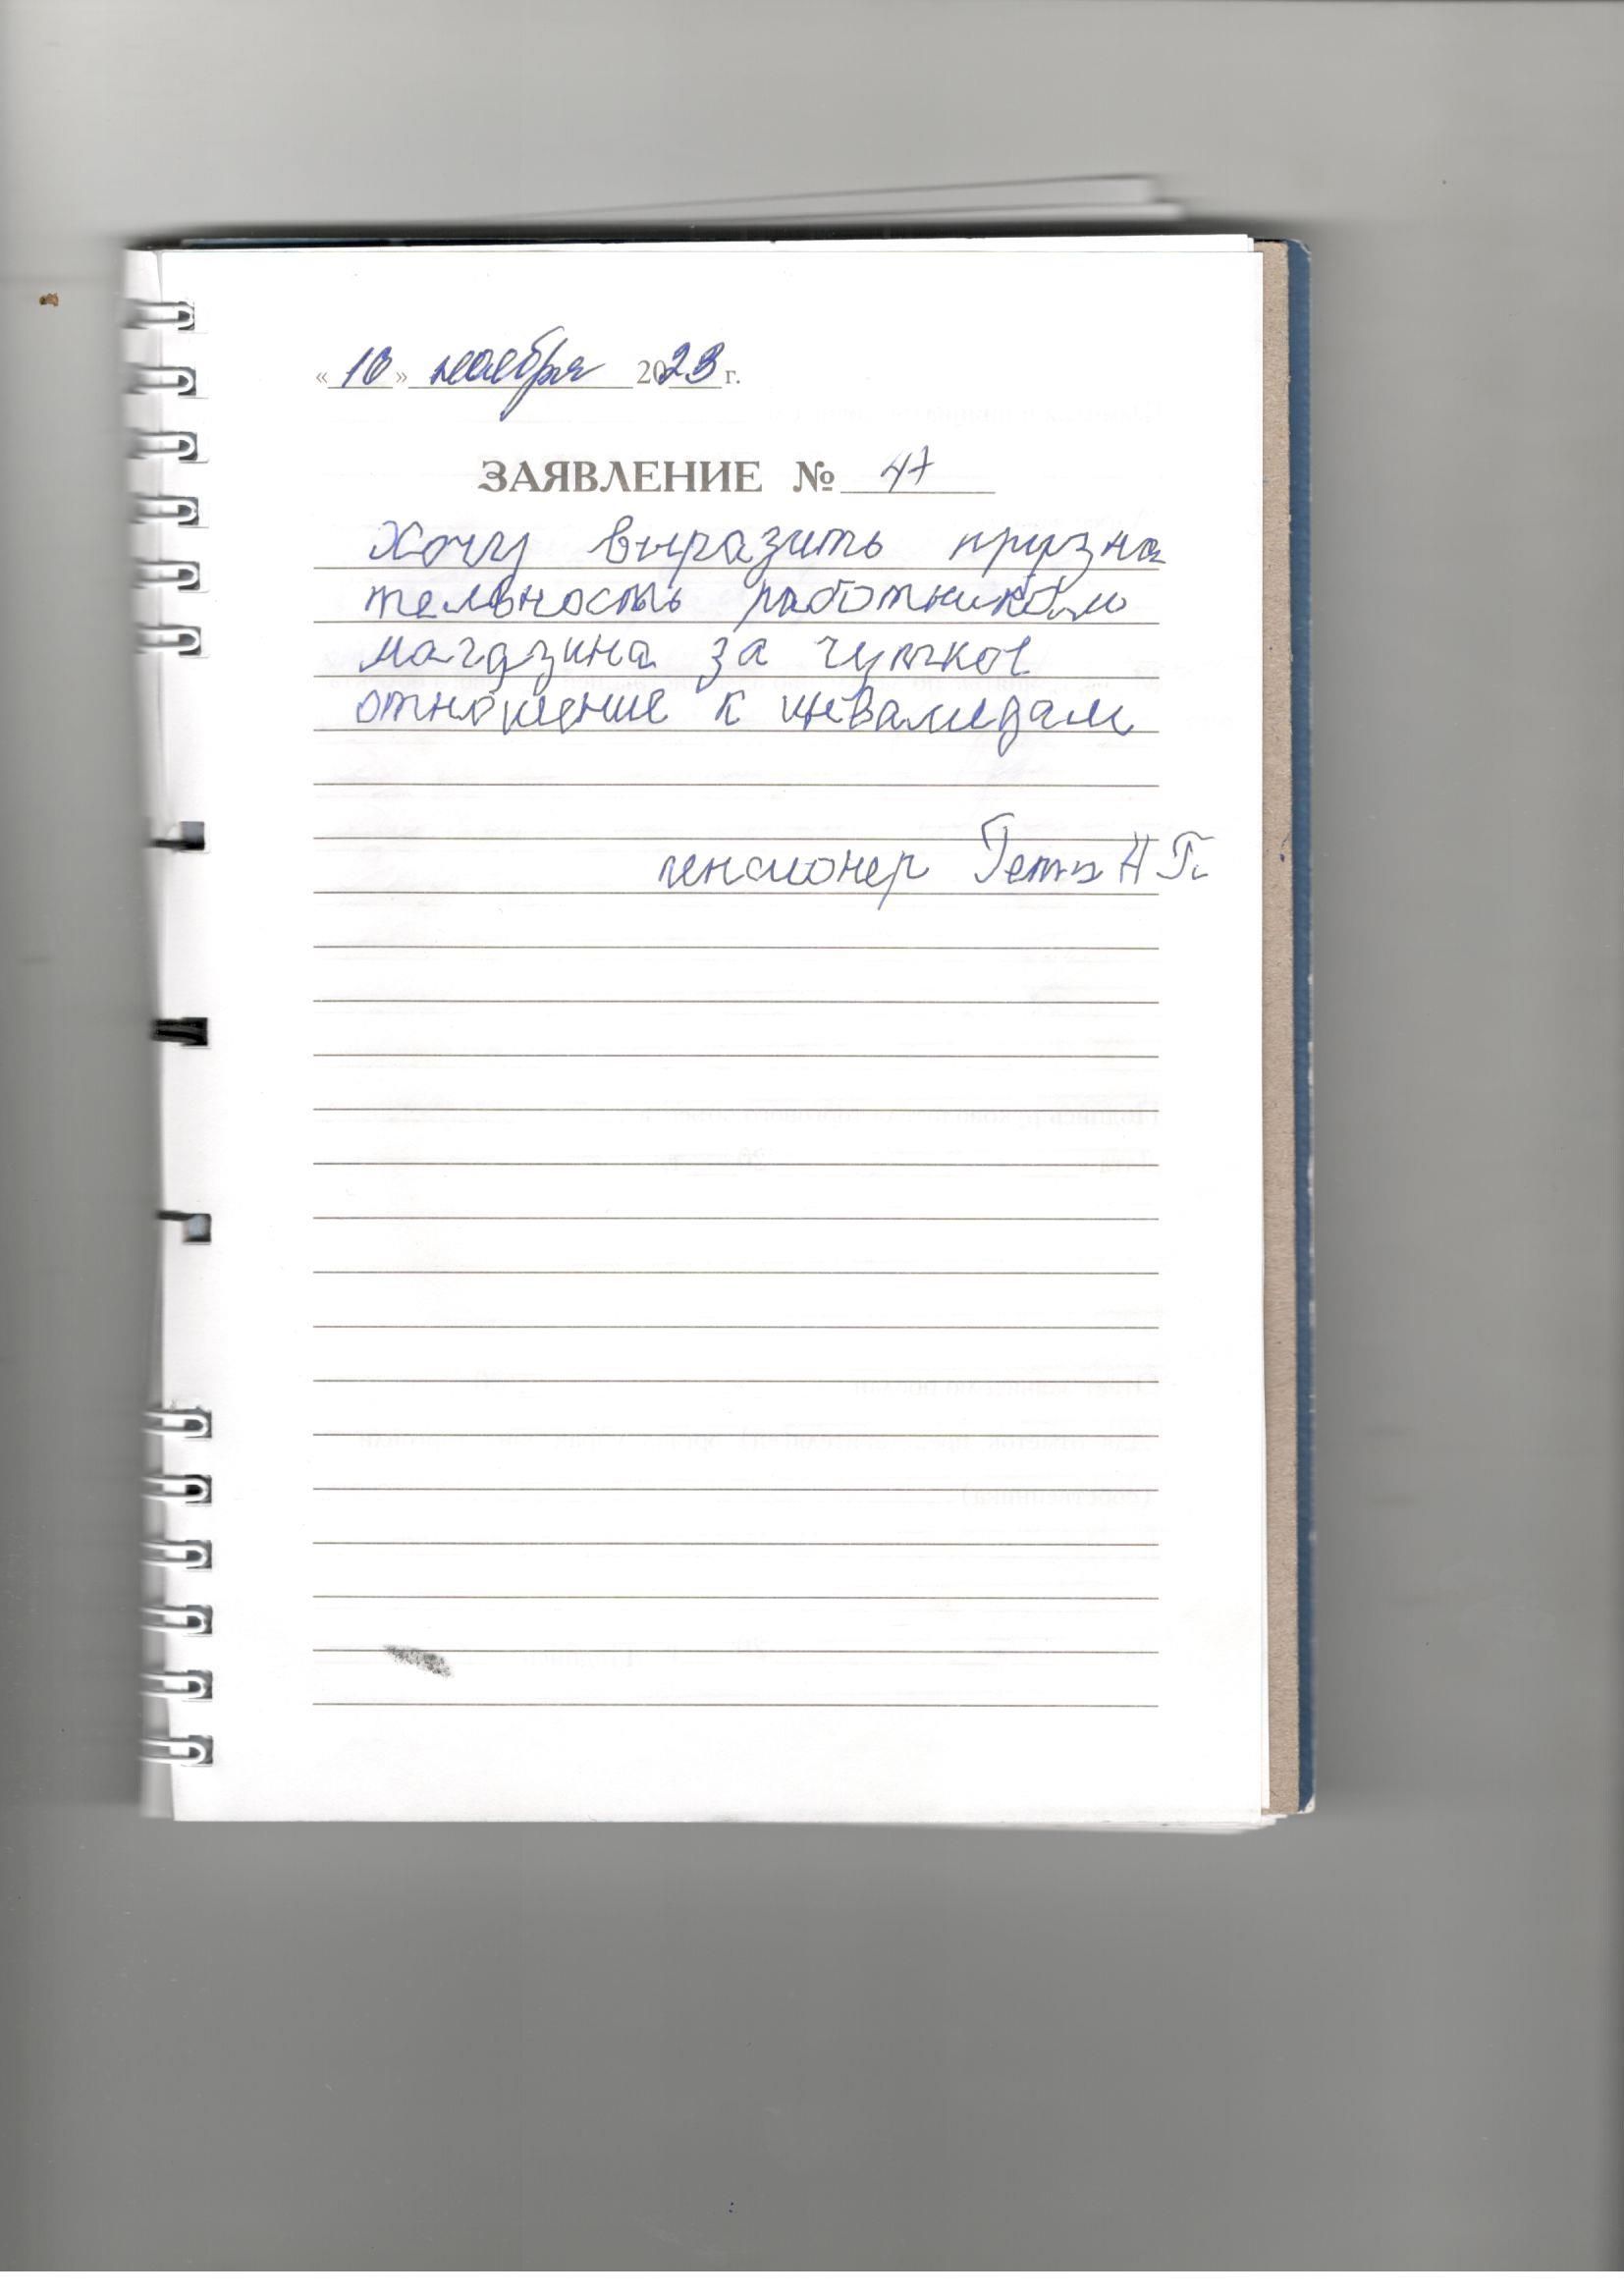 «10» ноября 2023 г.
ЗАЯВЛЕНИЕ № 47
Хочу выразить призна
тельность работникам
магазина за чуткое
отношение к инвалидам
пенсионер Н Г.